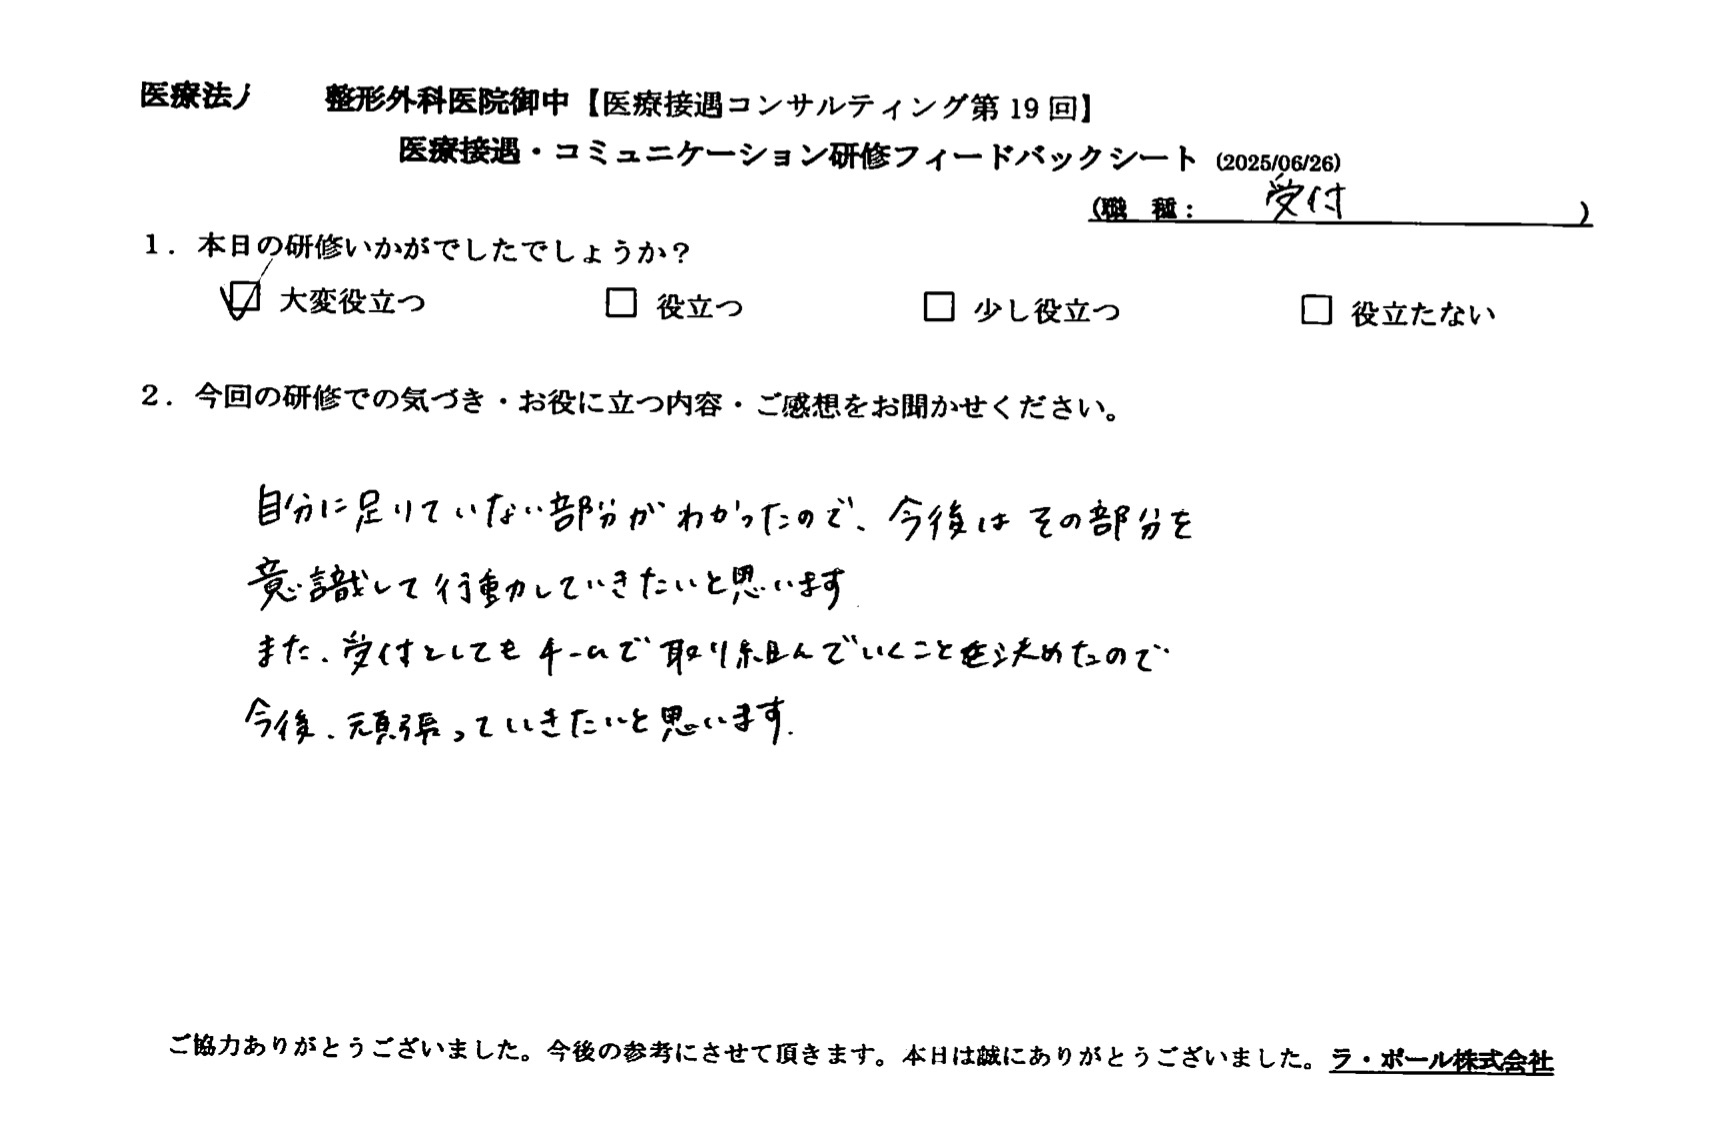 医療法人 整形外科医院御中【医療接遇コンサルティング第19回】
医療接遇・コミュニケーション研修フィードバックシート (2025/06/26)
(職 種: 受付 )
1. 本日の研修いかがでしたでしょうか?
☑ 大変役立つ □ 役立つ □ 少し役立つ □ 役立たない
2. 今回の研修での気づき・お役に立つ内容・ご感想をお聞かせください。
自分に足りていない部分がわかったので、今後はその部分を
意識して行動していきたいと思います
また、受付としてもチームで取り組んでいくことを決めたので
今後、頑張っていきたいと思います.
ご協力ありがとうございました。今後の参考にさせて頂きます。本日は誠にありがとうございました。ラ・ポール株式会社